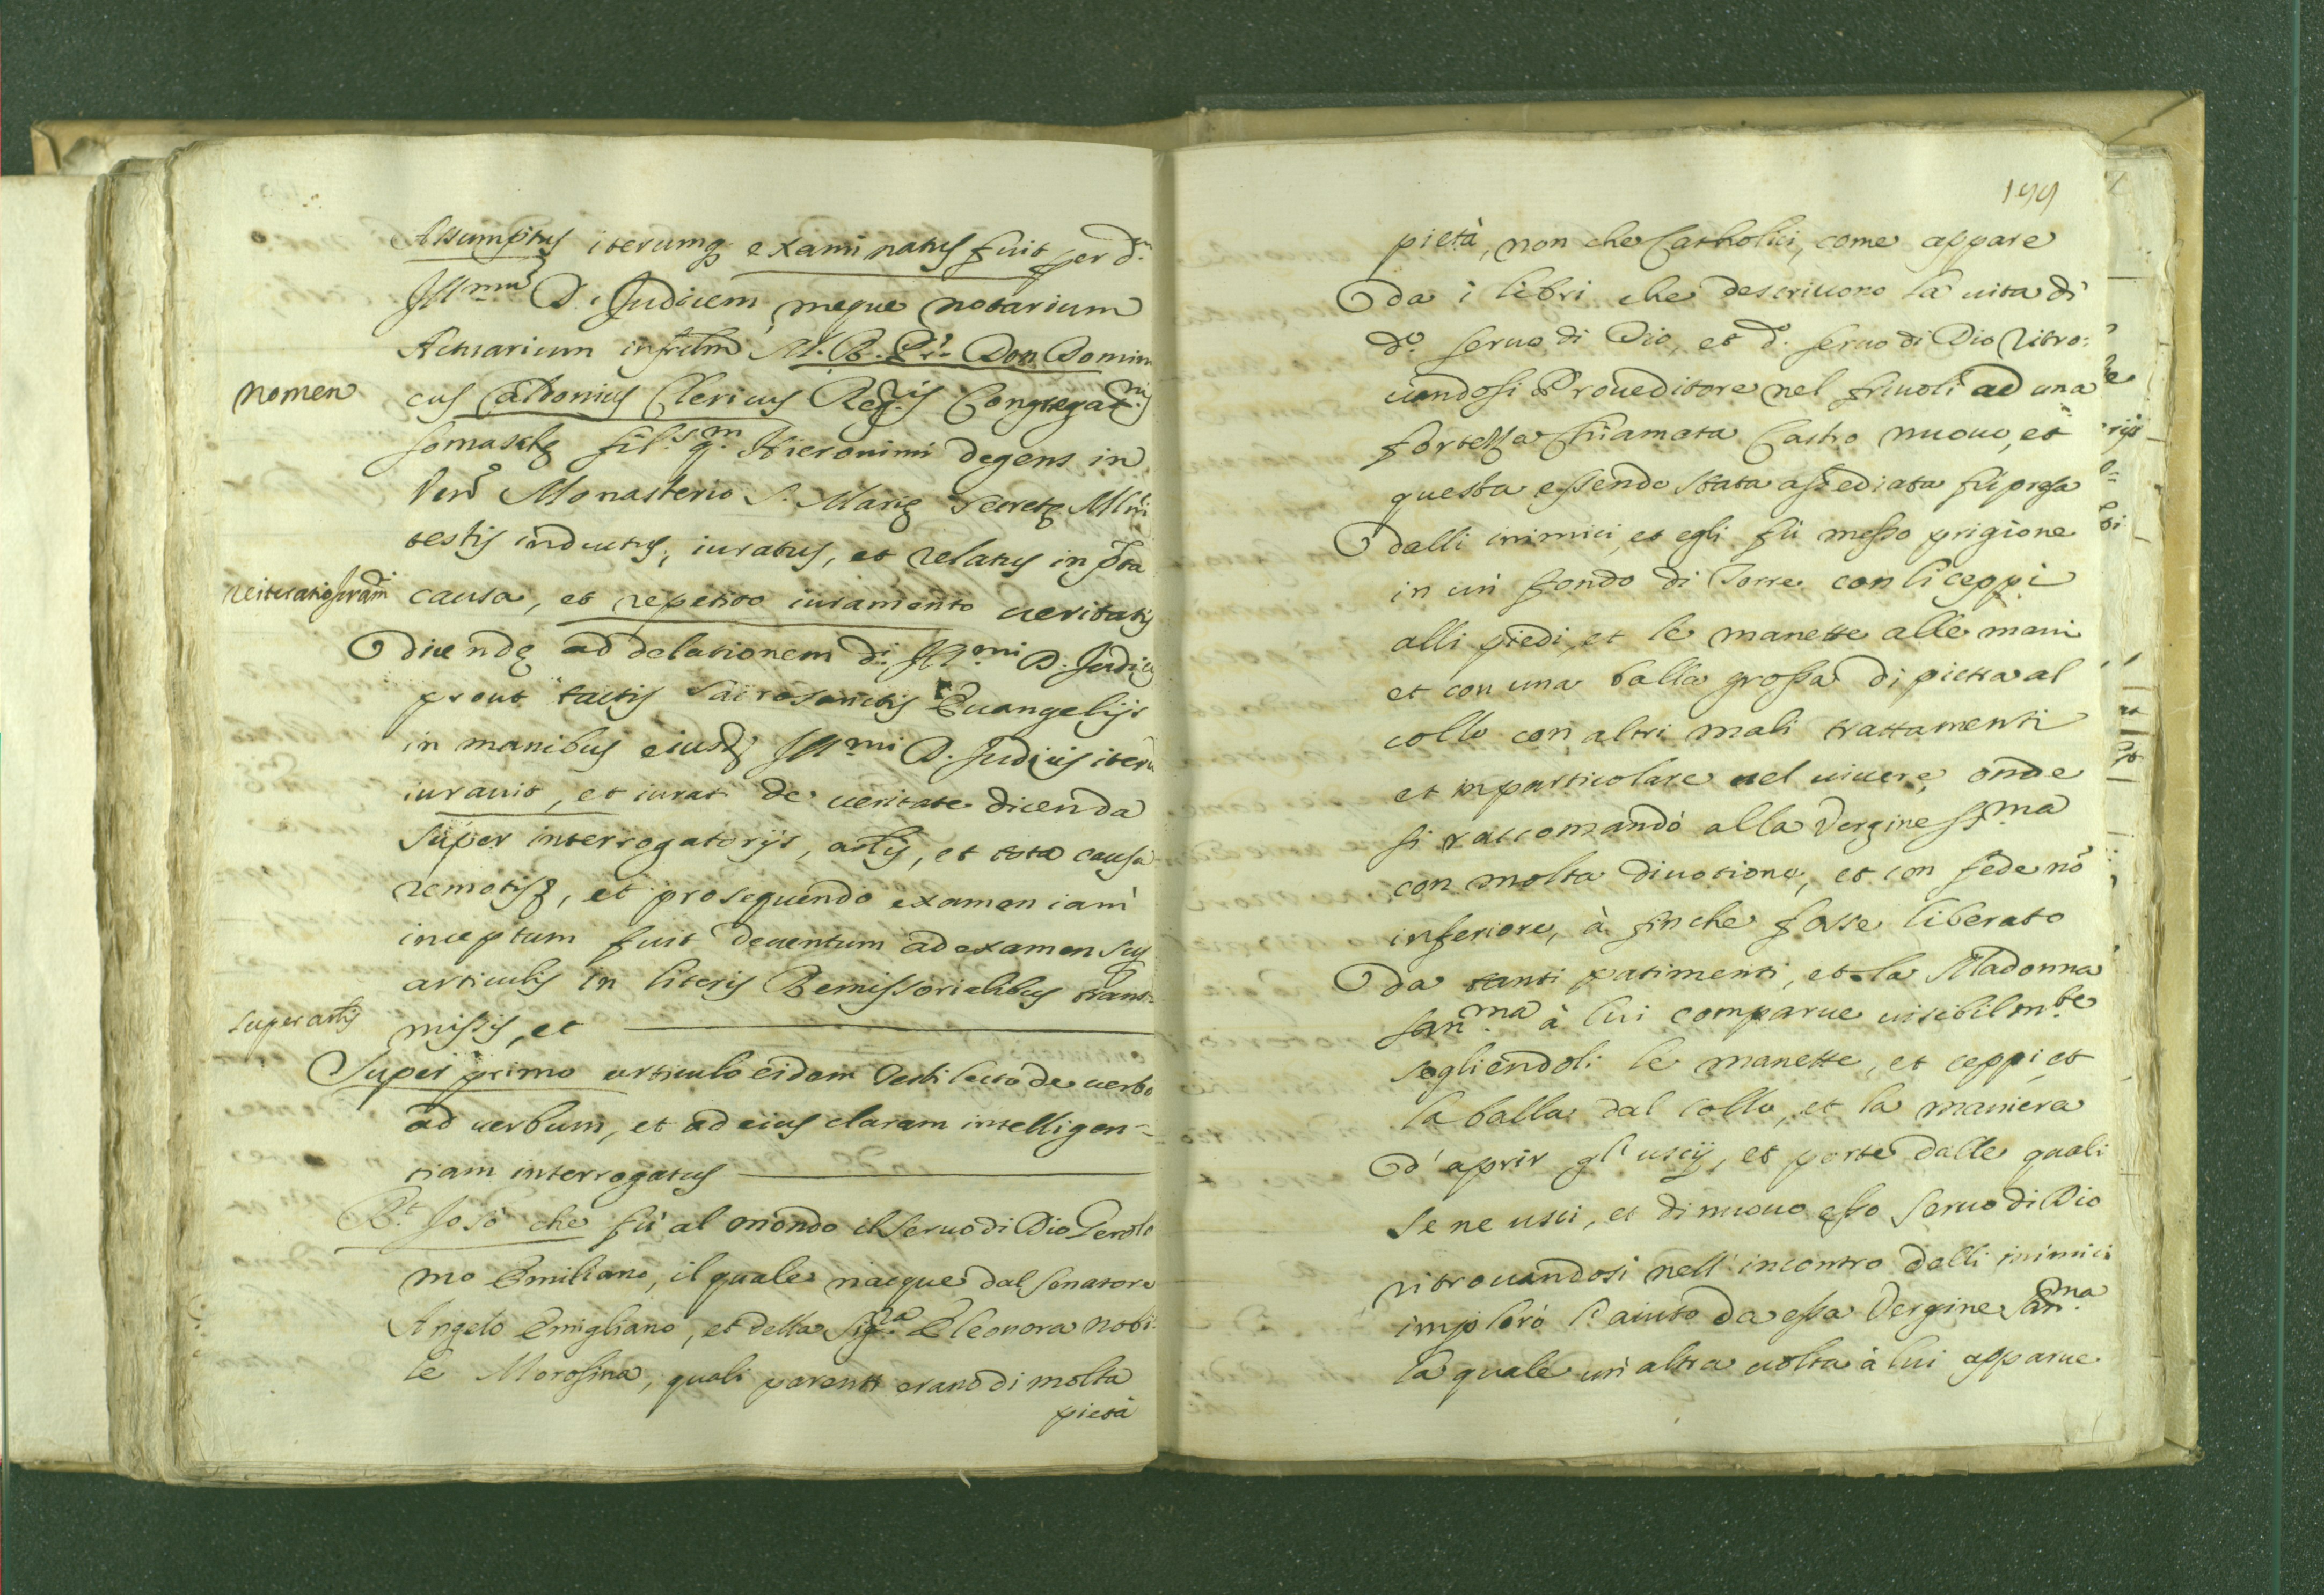 Assumptus iterumq examinatus fuit per d.
Ill.mũ D. Judicem, meque notarium
Actuarium infrũm M. R. P. Don Domini
nomen
cus Caldonius Clericus Reg.is Congregat.nis
somaschę fil.s q.m Hieronimi degens in
Ven.o Monasterio S. Marię secretę Mlni
testis inductus, iuratus, et relatus in pta
reiteratio iuram.ti
causa, et repetito iuramento veritatis
dicendę ad delationem d.i Ill.mi D. Judicis
prout tactis sacrosanctis Euangelijs
in manibus eiusd. Ill.mi D. Judicis iterũ
iurauit, et iurat de ueritate dicenda
super interrogatorijs, artlis, et tota causa
remotis, et prosequendo examen iam
inceptum fuit deuentum ad examen sup
articulis in literis Remissorialibus trans=
super artlis
missis, et
Super primo articulo eidem Testi lecto de uerbo
ad uerbum, et ad eius claram intelligen=
tiam interrogatus
R.t Io sò che fù al mondo il seruo di Dio Gerola
mo Emiliano, il quale nacque dal senatore
Angelo Emigliano, et della Sig.ra Eleonora nobi=
le Morosina, quali parenti erano di molta
pietà
199
pietà, non che Catholici, come appare
da i libri che descriuono la uita di
d.o seruo di Dio, et d.o seruo di Dio ritro=
uandosi Proueditore nel friuoli ad una
fortezza chiamata Castro nuouo, et
questa essendo stata assediata fù presa
dalli inimici, et egli fù messo prigione
in un fondo di Torre con li ceppi
alli piedi, et le manette alle mani
et con una balla grossa di pietra al
collo con altri mali trattamenti
et in particolare nel uiuere, onde
si raccomandò alla Vergine SS.ma
con molta diuotione, et con fede nõ
inferiore, à finche fosse liberato
da tanti patimenti, et la Madonna
San.ma à lui comparue uisibilm.te
togliendoli le manette, et ceppi, et
la balla dal collo, et la maniera
d'aprir gl'uscij, et porte dalle quali
se ne uscì, et di nuouo esso seruo di Dio
ritrouandosi nell'incontro delli inimici
implorò l'aiuto da essa Vergine San.ma
la quale un altra uolta à lui apparue